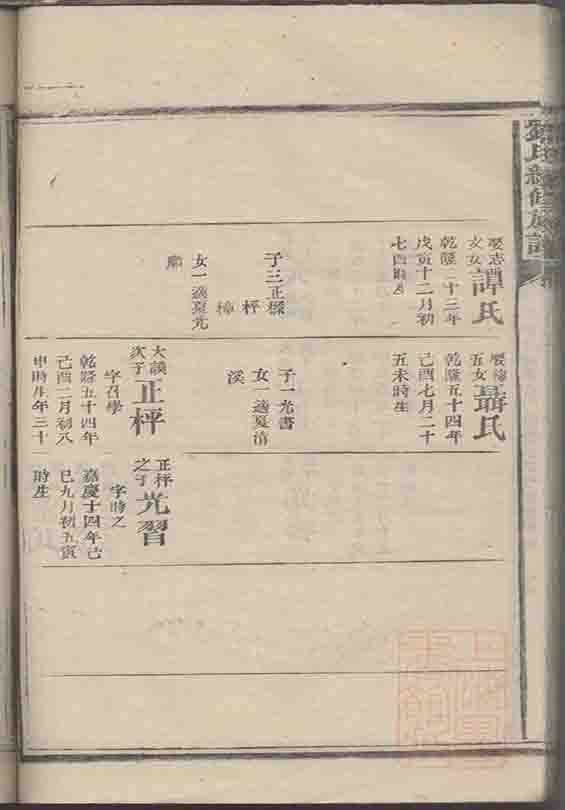 氏續修族譜
譚氏
文女
乾隆二十三年
戊寅十二月初
七酉時
子三正樑
枰
樟
女一適夏光
聶氏
五女
乾隆五十四年
己酉七月二十
五未時生
子一光書
女一適夏清
溪
大謨
次子
正枰
字召學
乾隆五十四年
己酉二月初八
申時生年三十
正枰
之子
光習
字時之
嘉慶十四年己
巳九月初五寅
時生